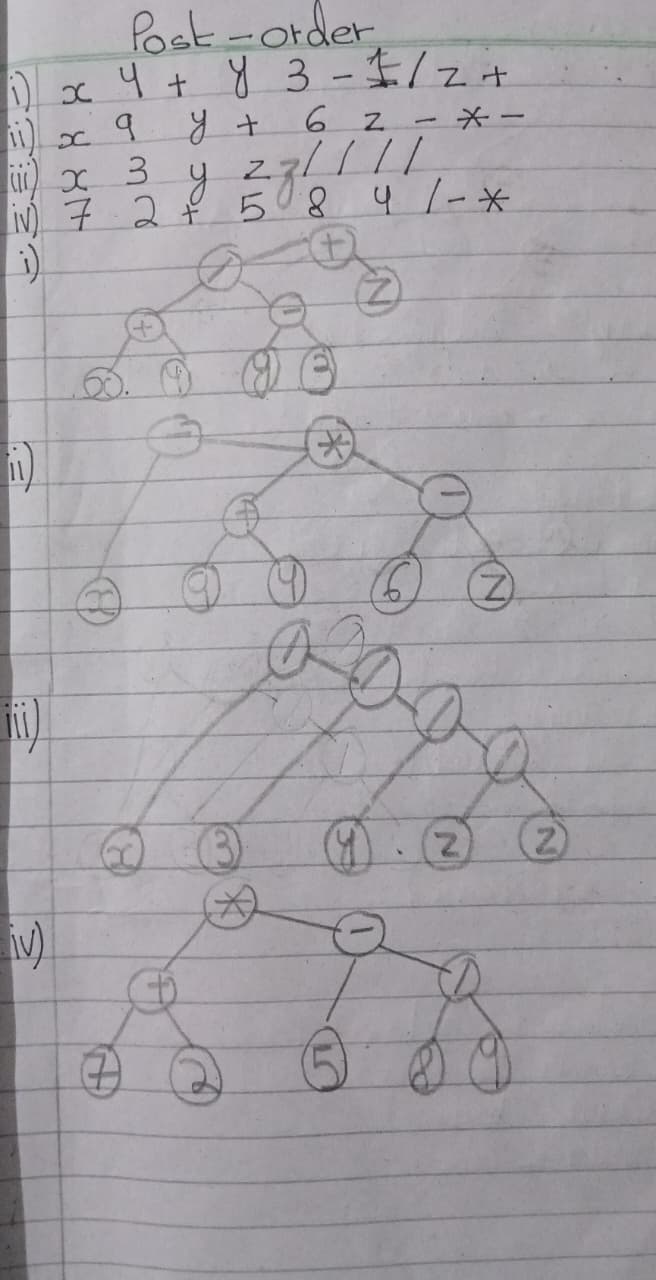 Post-order
i) x 4 + y 3 - / z +
ii) x 9 y + 6 z - * -
iii) x 3 y z z / / / /
iv) 7 2 + 5 8 4 / - *
i)
/ +
z
+ -
x 9 y 3
ii)
- *
+ -
x 9 4 6 z
iii)
/
/
/
/
x 3 y z z
iv)
*
-
+ /
7 2 5 8 9